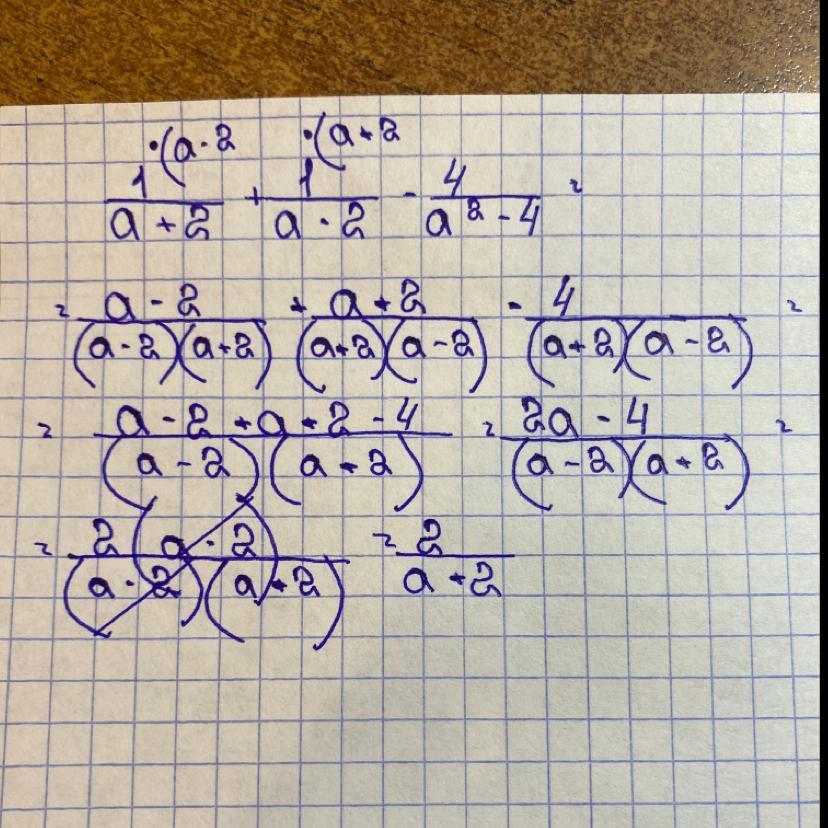 ·(a-2 ·(a+2
1/(a+2) + 1/(a-2) - 4/(a²-4) =
= (a-2)/((a-2)(a+2)) + (a+2)/((a+2)(a-2)) - 4/((a+2)(a-2)) =
= (a-2+a+2-4)/((a-2)(a+2)) = (2a-4)/((a-2)(a+2)) =
= 2(a-2)/((a-2)(a+2)) = 2/(a+2)